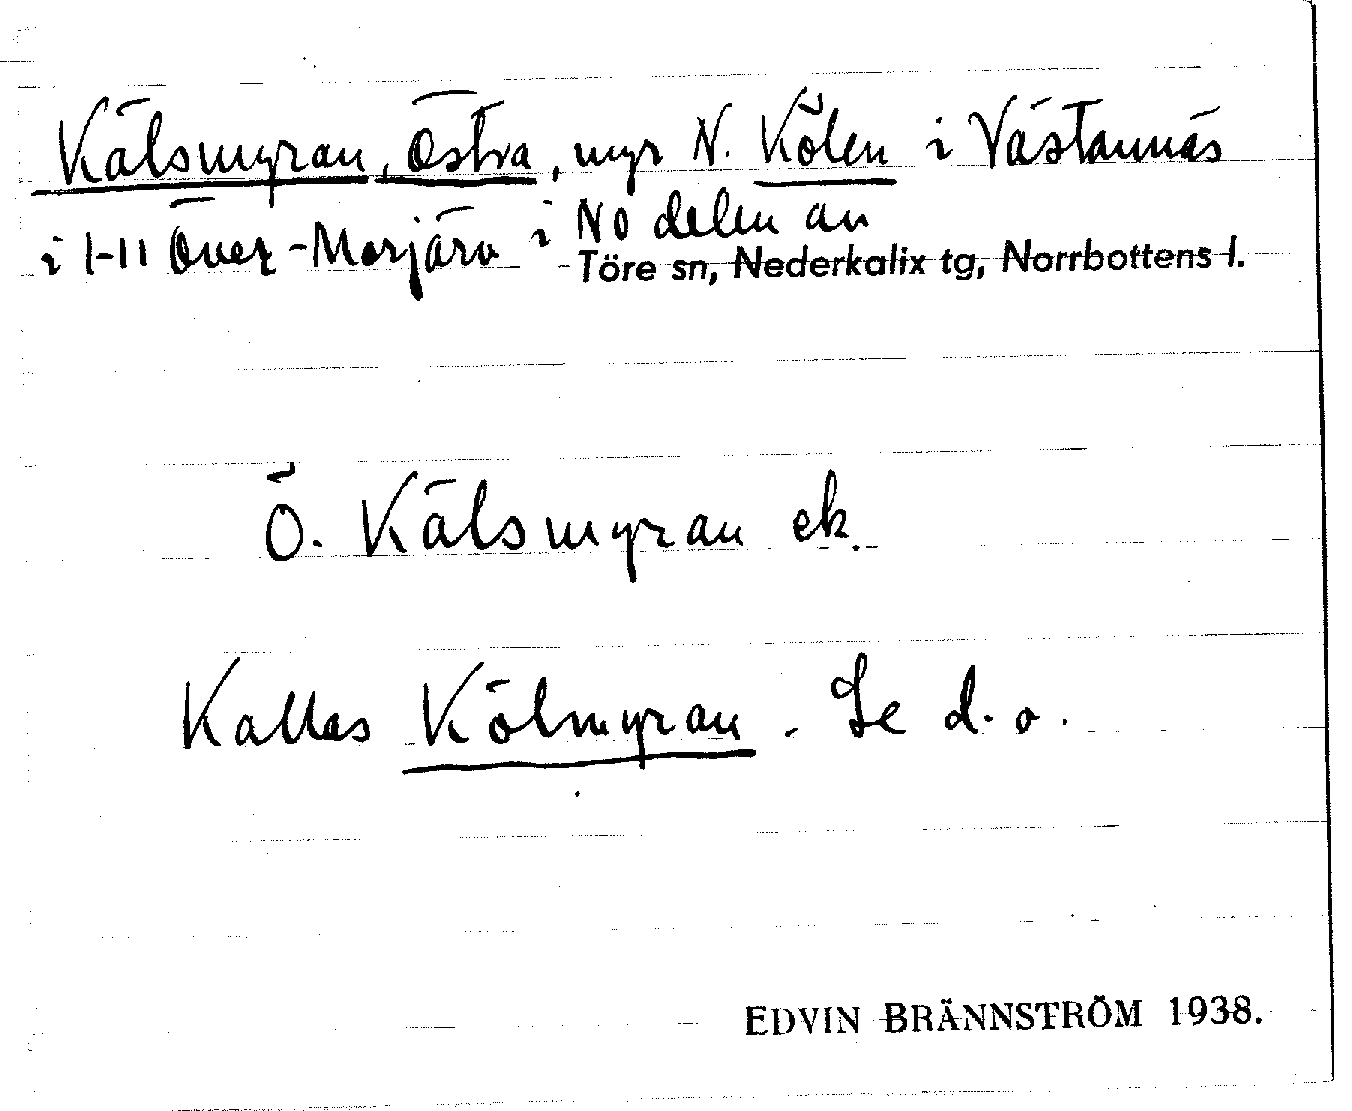 Kälsmyran, Östra, myr N. Kölen i Västannäs
i I-II Över-Morjärv i NO delen av
Töre sn, Nederkalix tg, Norrbottens l.
Ö. Kälsmyran ek.
Kallas Kölmyran. Se d. o.
EDVIN BRÄNNSTRÖM 1938.